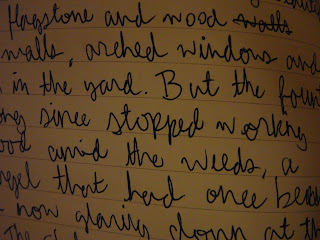 flagstone and wood walls
walls, arched windows and
in the yard. But the fount
ong since stopped working
ood amid the weeds, a
ngel that had once bea
now glaring down at th